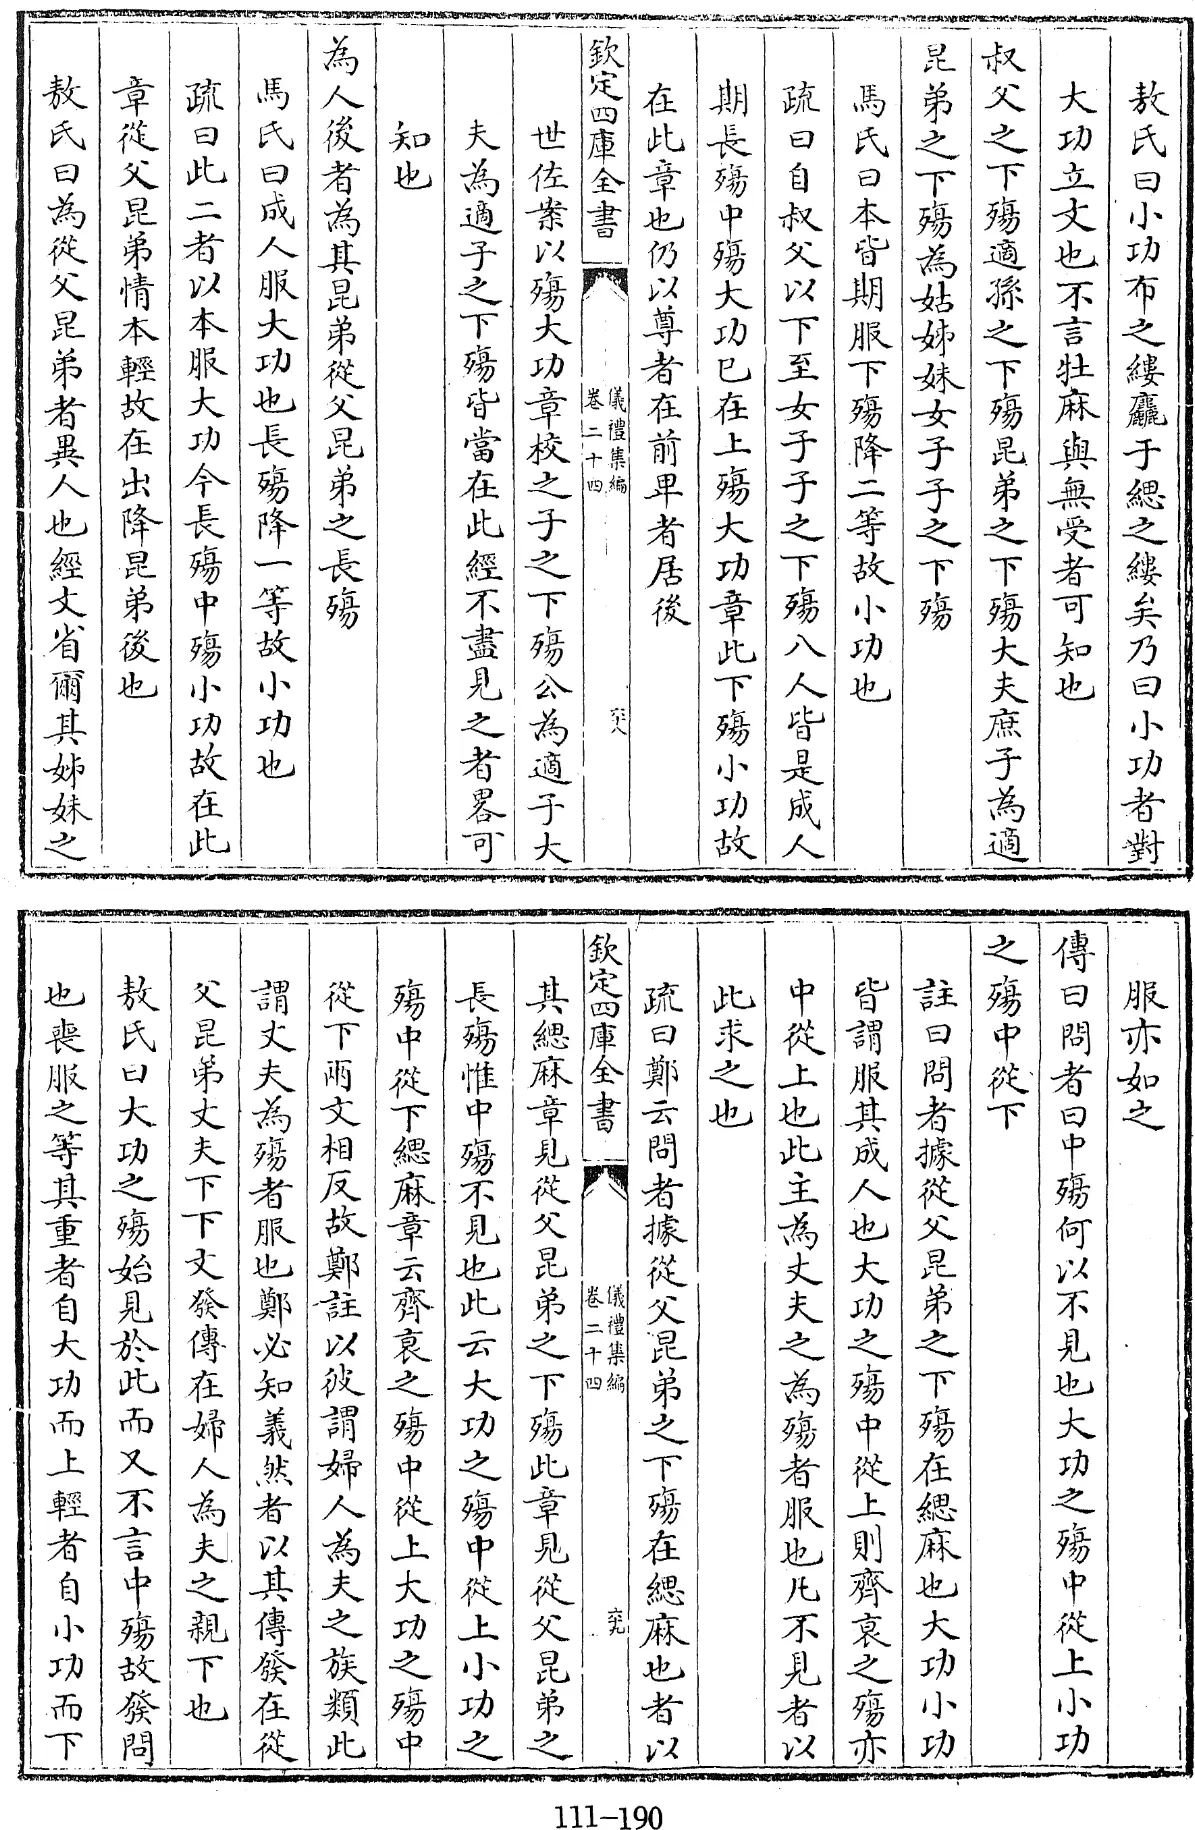 敖氏曰小功布之縷麤于緦之縷矣乃曰小功者對
大功立文也不言牡麻與無受者可知也
叔父之下殤適孫之下殤昆弟之下殤大夫庶子為適
昆弟之下殤為姑姊妹女子子之下殤
馬氏曰本皆期服下殤降二等故小功也
疏曰自叔父以下至女子子之下殤八人皆是成人
期長殤中殤大功已在上殤大功章此下殤小功故
在此章也仍以尊者在前卑者居後
欽定四庫全書
儀禮集編
卷二十四
六八
世佐案以殤大功章校之子之下殤公為適子大
夫為適子之下殤皆當在此經不盡見之者畧可
知也
為人後者為其昆弟從父昆弟之長殤
馬氏曰成人服大功也長殤降一等故小功也
疏曰此二者以本服大功今長殤中殤小功故在此
章從父昆弟情本輕故在出降昆弟後也
敖氏曰為從父昆弟者異人也經文省爾其姊妹之
服亦如之
傳曰問者曰中殤何以不見也大功之殤中從上小功
之殤中從下
註曰問者據從父昆弟之下殤在緦麻也大功小功
皆謂服其成人也大功之殤中從上則齊衰之殤亦
中從上也此主為丈夫之為殤者服也凡不見者以
此求之也
疏曰鄭云問者據從父昆弟之下殤在緦麻也者以
欽定四庫全書
儀禮集編
卷二十四
六九
其緦麻章見從父昆弟之下殤此章見從父昆弟之
長殤惟中殤不見也此云大功之殤中從上小功之
殤中從下緦麻章云齊衰之殤中從上大功之殤中
從下兩文相反故鄭註以彼謂婦人為夫之族類此
謂丈夫為殤者服也鄭必知義然者以其傳發在從
父昆弟丈夫下下文發傳在婦人為夫之親下也
敖氏曰大功之殤始見於此而又不言中殤故發問
也喪服之等其重者自大功而上輕者自小功而下
111-190